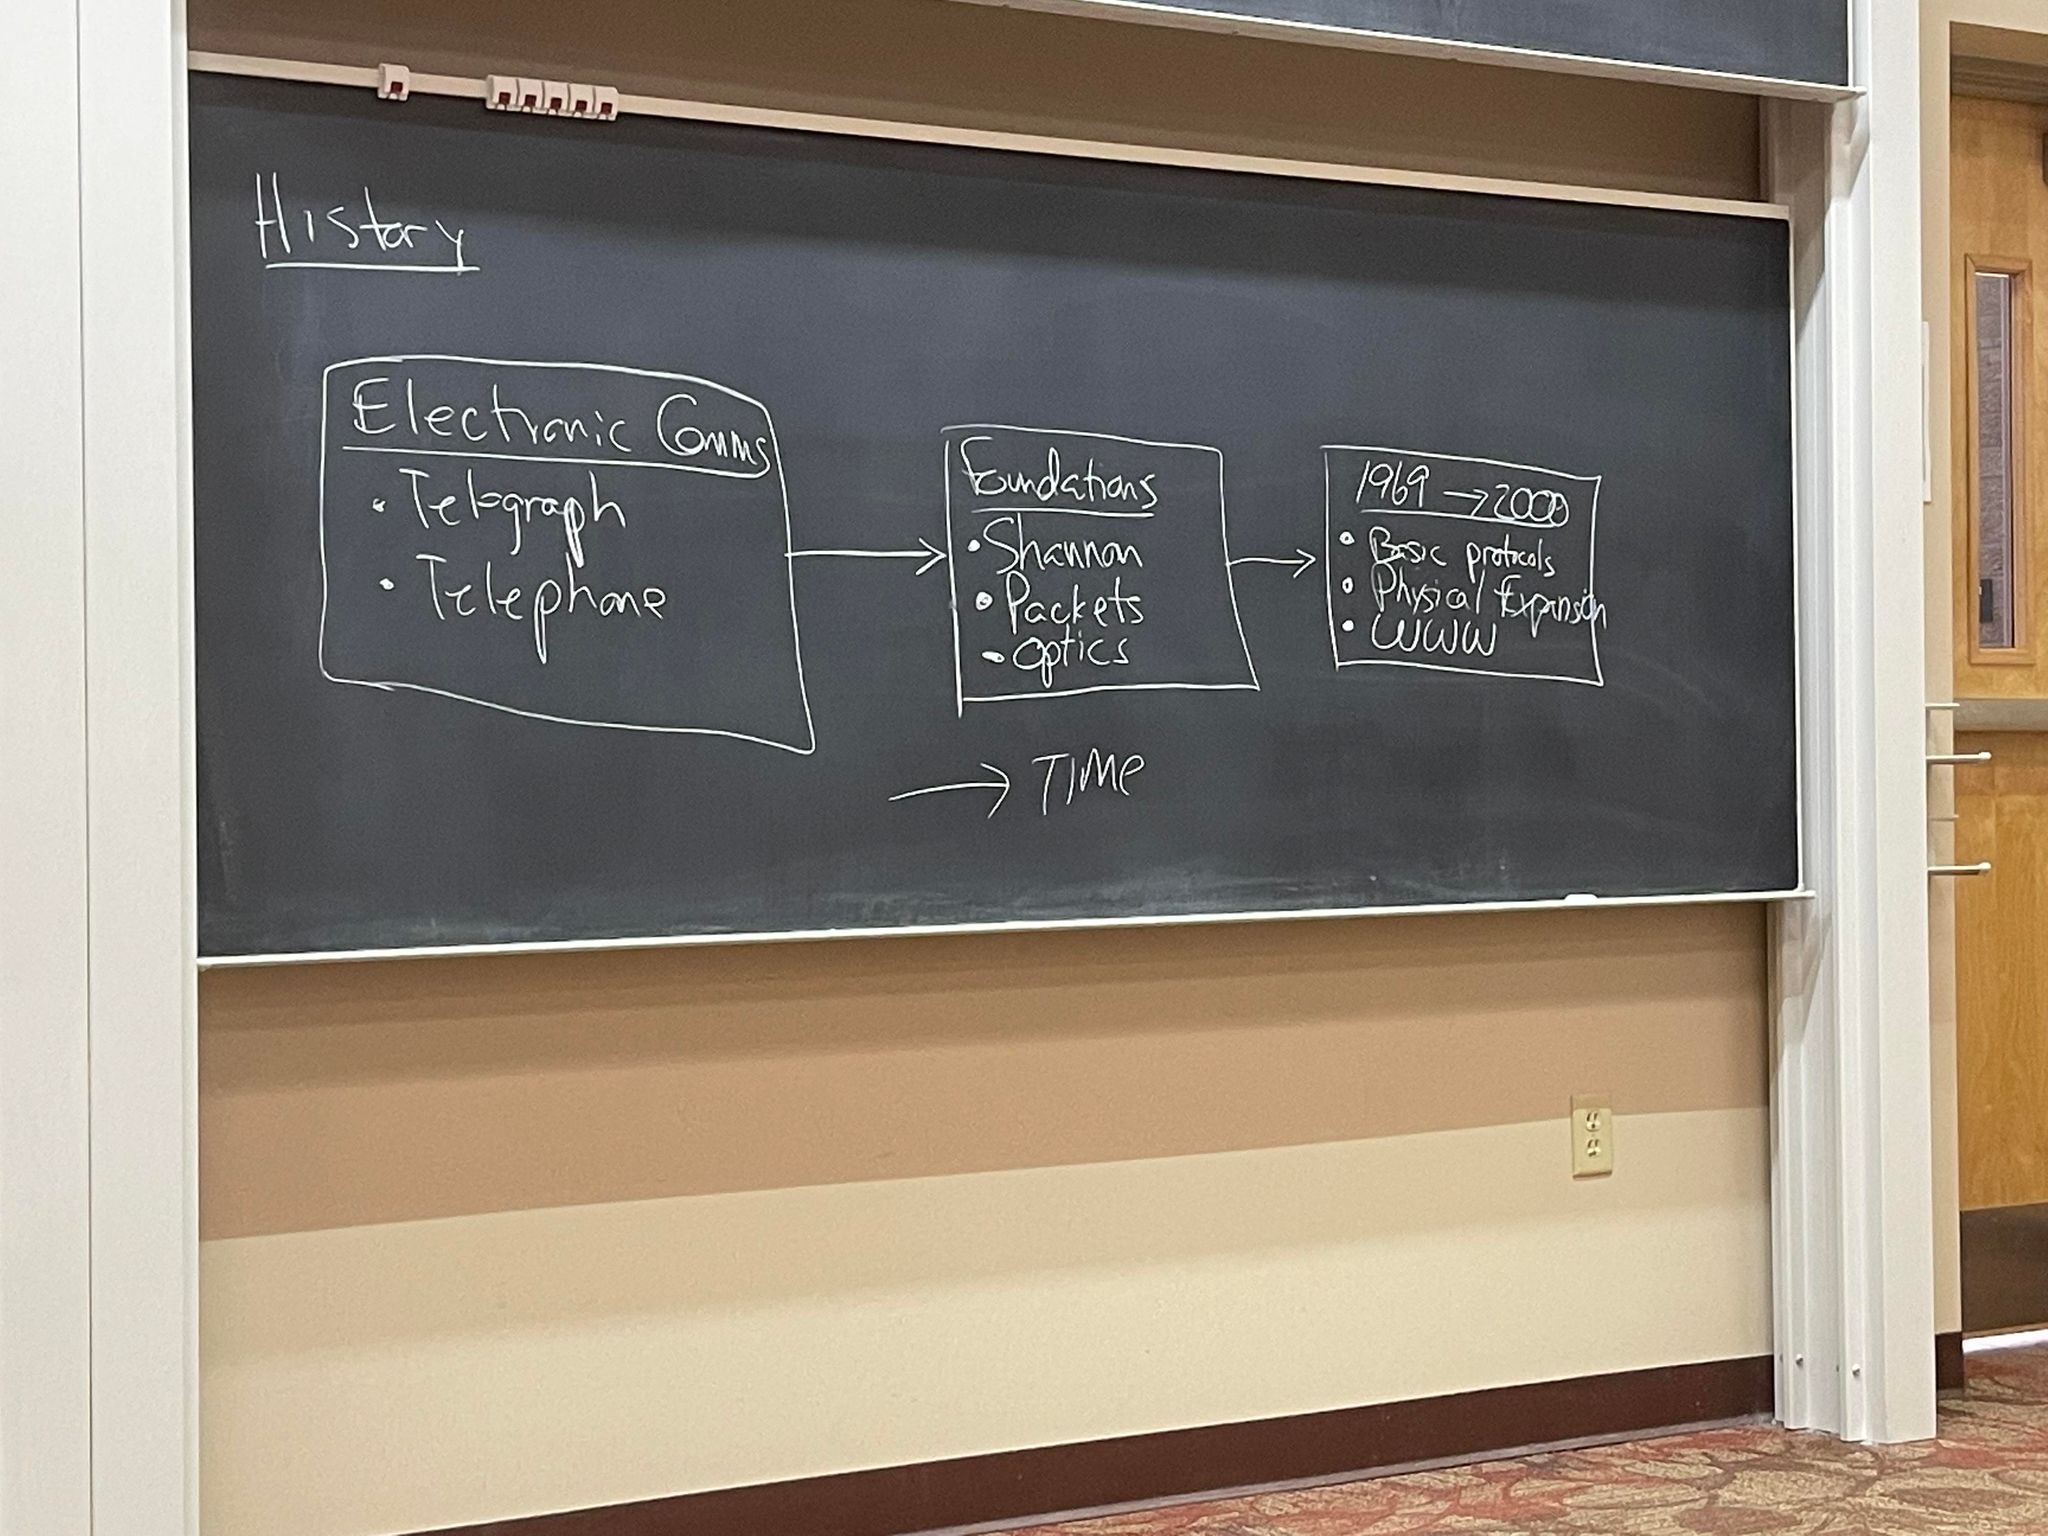 History
Electronic Comms
• Telegraph
• Telephone
Foundations
• Shannon
• Packets
• Optics
1969 → 2000
• Basic protocols
• Physical Expansion
• WWW
→ TIME